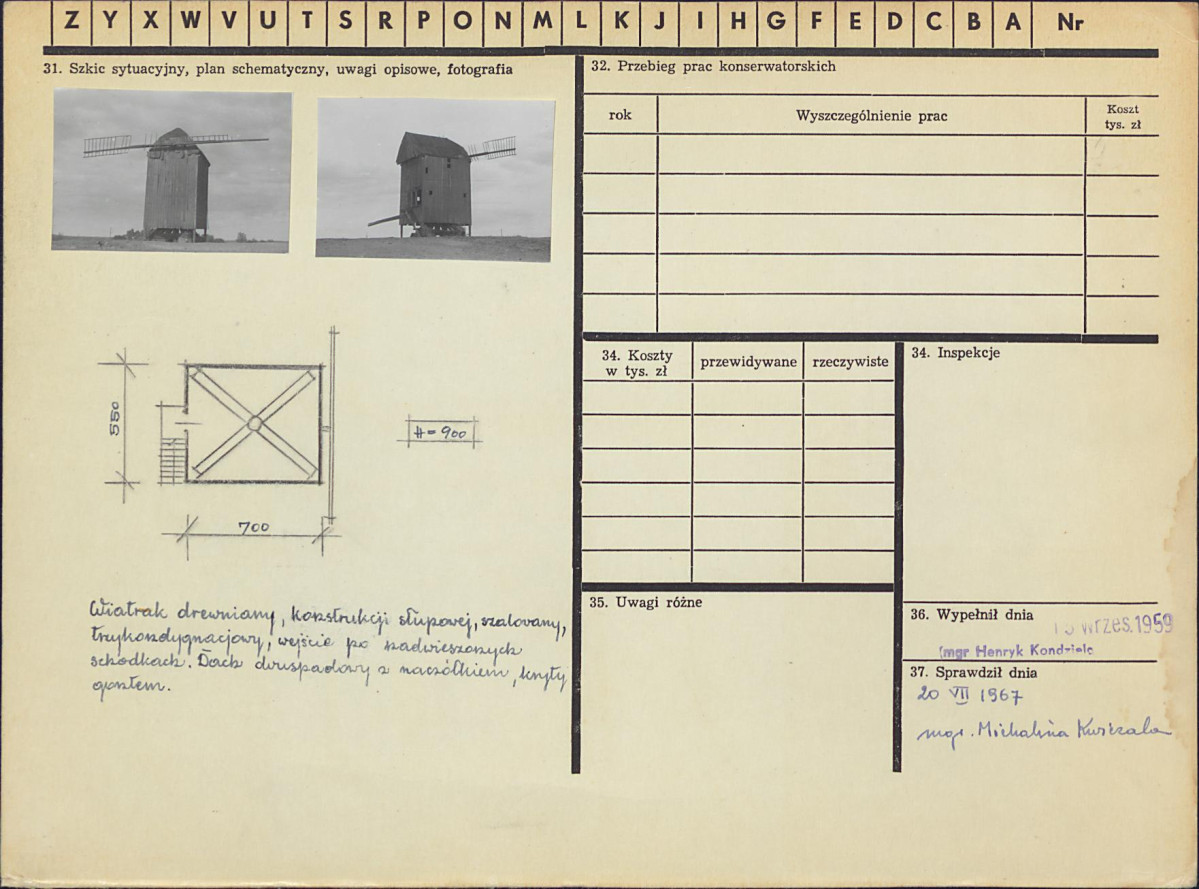 Z Y X W V U T S R P O N M L K J I H G F E D C B A Nr
31. Szkic sytuacyjny, plan schematyczny, uwagi opisowe, fotografia
550
700
H = 900
Wiatrak drewniany, konstrukcji słupowej, szalowany,
trzykondygnacjowy, wejście po nadwieszonych
schodkach. Dach dwuspadowy z naczółkiem, kryty
gontem.
32. Przebieg prac konserwatorskich
rok
Wyszczególnienie prac
Koszt
tys. zł
34. Koszty
w tys. zł
przewidywane
rzeczywiste
34. Inspekcje
35. Uwagi różne
36. Wypełnił dnia
wrzes. 1959
(mgr Henryk
37. Sprawdził dnia
20 VII 1967
mgr. Michalina